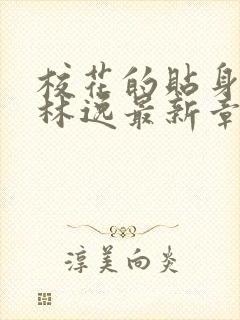 校花的贴身
林逸最新章
淳美向炎